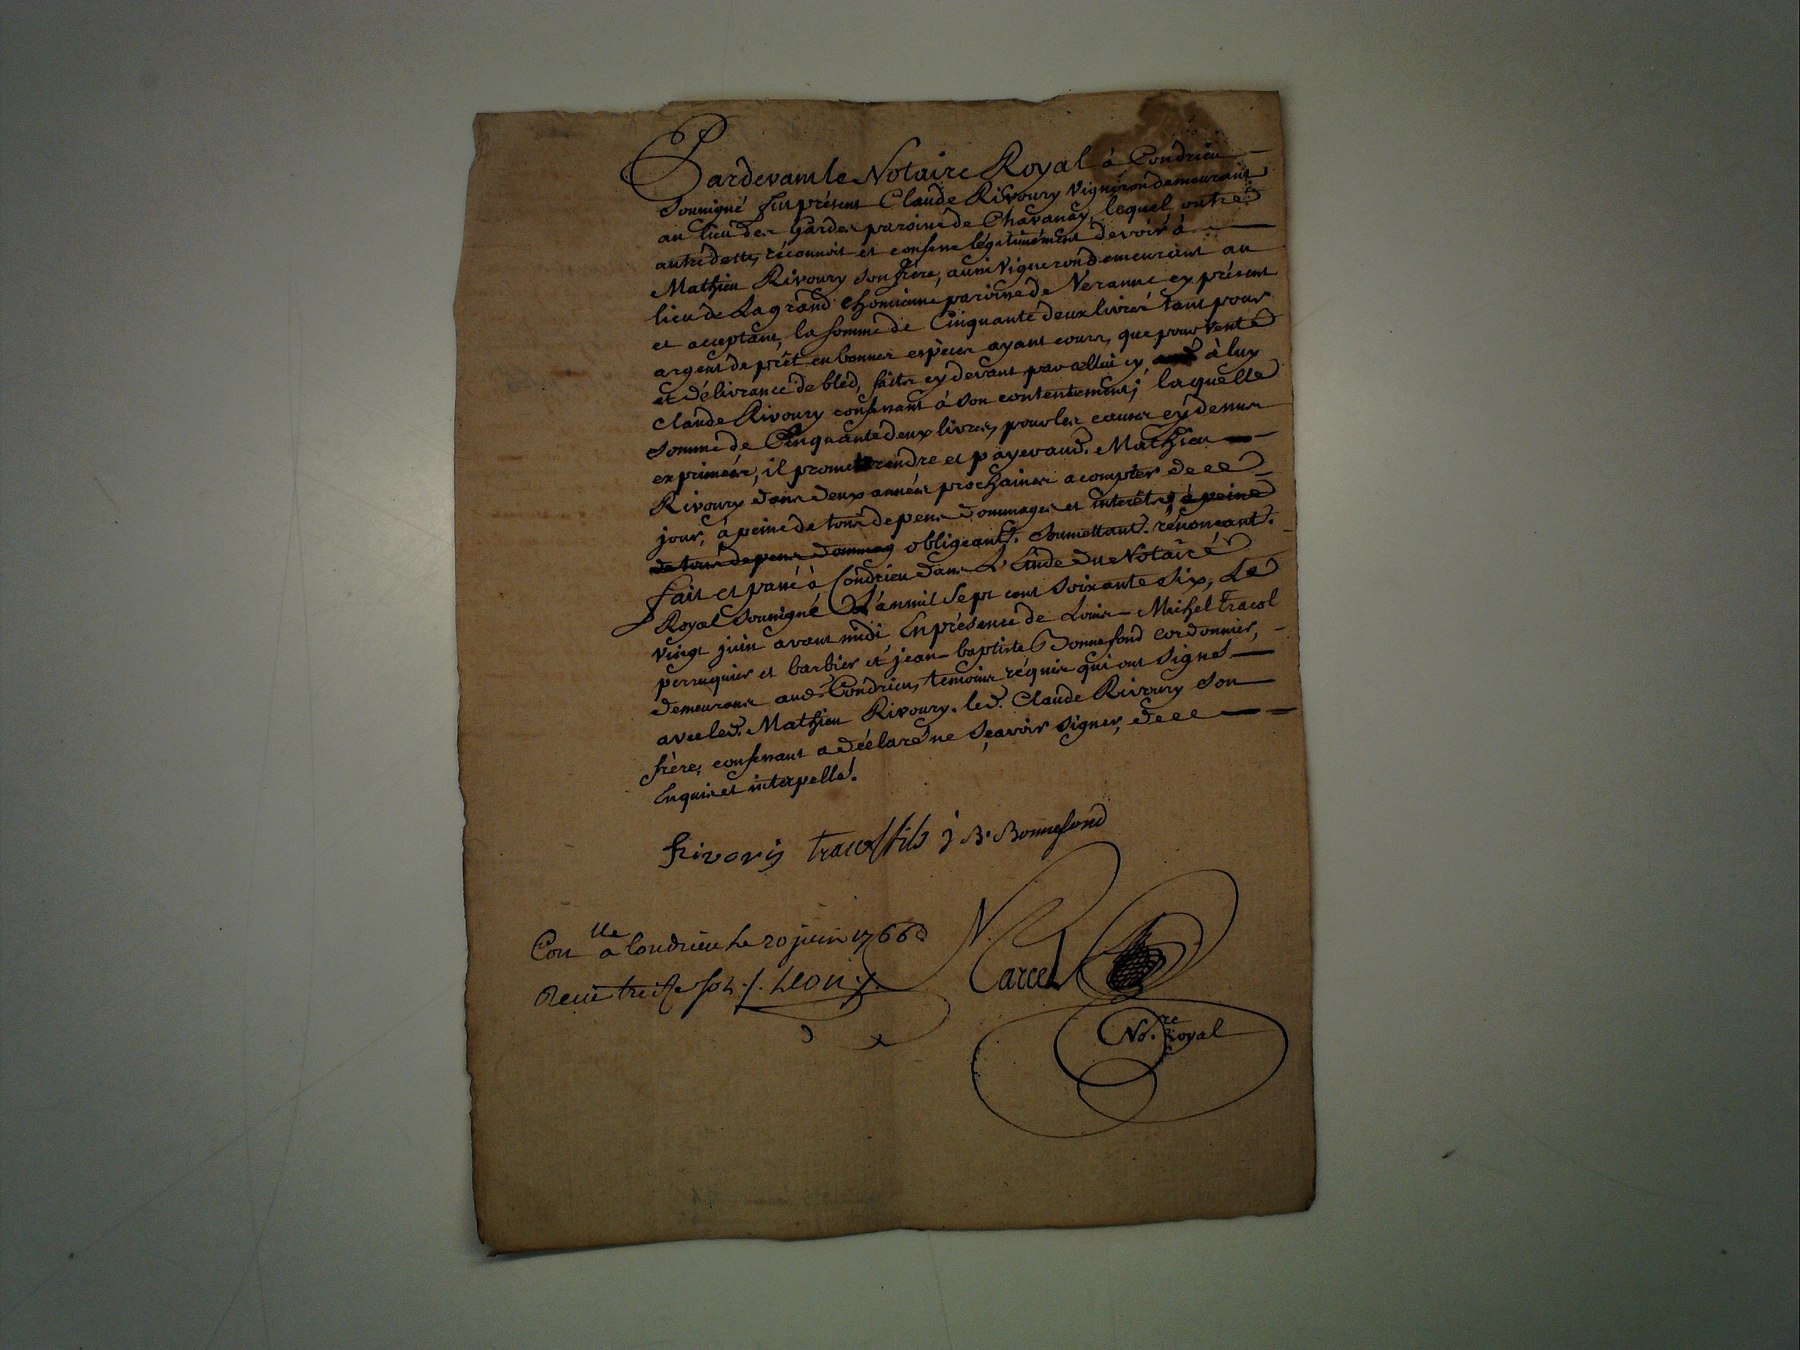 Pardevant le Notaire Royal à Condrieu
Soussigné fut présent Claude Rivoury vigneron demeurant
au lieu des Gardes paroisse de Chavanay, lequel outre
autre dette, réconnoit et confesse légitimément devoir à
Mathieu Rivoury son frère, aussi vigneron demeurant au
lieu de Lagrand chomienne paroisse de Veranne cy présent
et acceptant, la somme de Cinquante deux livres tant pour
argent de prêt en bonnes espèces ayant cours, que pour vente
et délivrance de bled, faits cy devant par celui cy à luy
Claude Rivoury confessant à son contentement; laquelle
somme de Cinquante deux livres, pour les causes cy dessus
exprimées, il promet rendre et payer aud. Mathieu
Rivoury dans deux années prochaines a compter de ce
jour, à peine de tous depens dommages et interêts, à peine
de tous depens dommag obligeant. Soumettant. rénonçant.
fait et passé à Condrieu dans L'Etude du Notaire
Royal soussigné L'an mil sept cent soixante six, Le
vingt juin avant midi En présence de Louis Michel tracol
perruquier et barbier et jean baptiste Bonnefond cordonnier,
demeurans aud. Condrieu, temoins réquis qui ont signé
avec led. Mathieu Rivoury. led. Claude Rivoury son
frère, confessant a déclaré ne sçavoir signer, de ce
Enquis et interpellé.
tracol fils j B. Bonnefond
Con.lle a Condrieu le 20 juin 1766
Reçu treize sols ./. Leon ./.
Marcel
No.re Royal